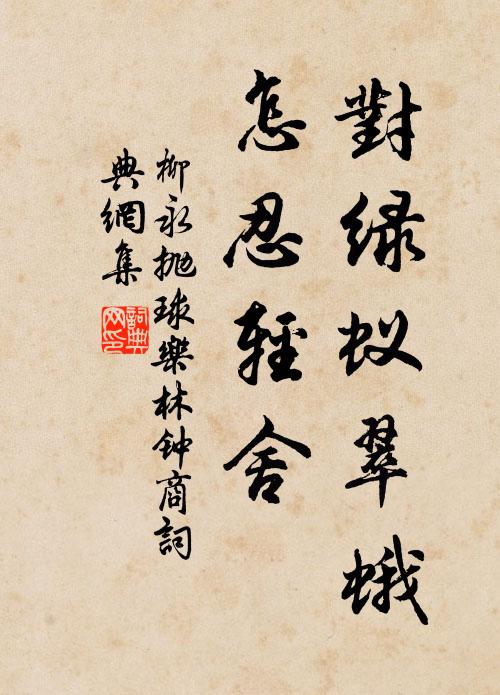 對綠蚁翠蛾
怎忍輕舍
柳永抛球樂林钟商詞
典網集
詞典网印